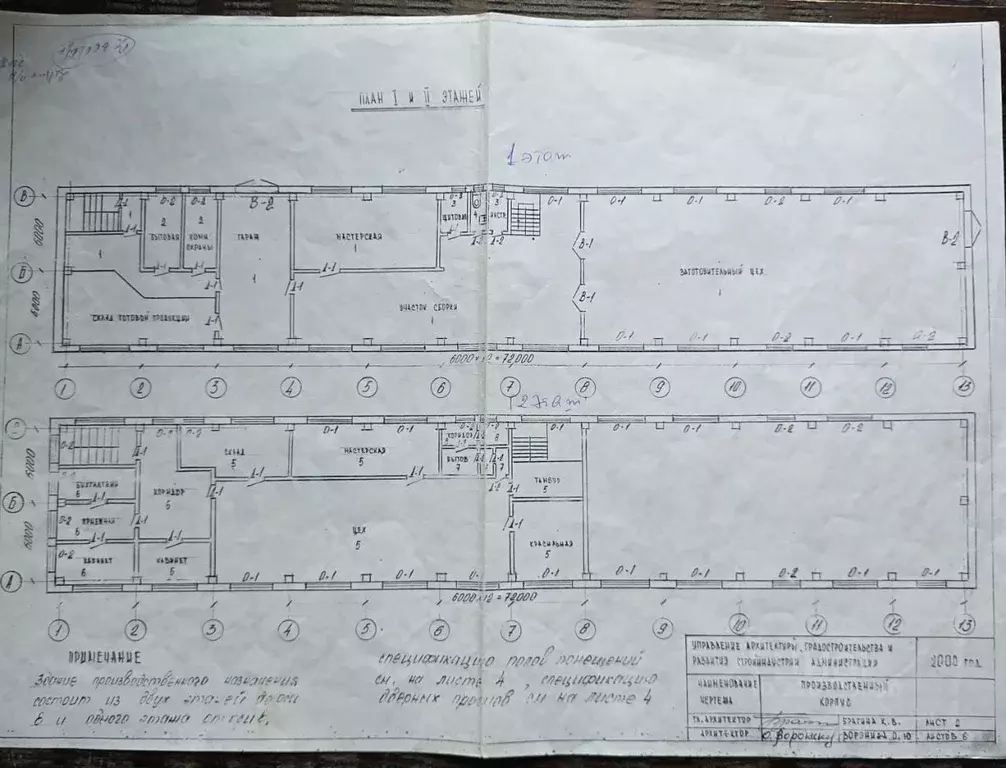 ПЛАН I и II ЭТАЖЕЙ
1 этаж
В
Д-1
О-2
О-2
В-2
О-2
О-1
О-1
О-1
О-2
О-1
6000
1
Д-1
2
БЫТОВАЯ
2
КОМН. ОХРАНЫ
ГАРАЖ
МАСТЕРСКАЯ
1
3
ЩИТОВАЯ
4
3
Д-1
Д-2
В-1
В-2
1
Д-1
Д-1
Д-1
Б
ЗАГОТОВИТЕЛЬНЫЙ ЦЕХ
1
6000
Д-1
1
Д-1
В-1
СКЛАД ГОТОВОЙ ПРОДУКЦИИ
Д-1
УЧАСТОК СБОРКИ
1
А
О-1
О-1
О-2
О-1
О-2
6000 × 12 = 72000
1 2 3 4 5 6 7 8 9 10 11 12 13
2 этаж
О-2
Д-1
О-2
О-2
О-1
О-1
О-2
О-1
О-1
О-1
О-2
О-2
6000
СКЛАД
5
МАСТЕРСКАЯ
5
КОРИДОР
8
Д-1
БУХГАЛТЕРИЯ
6
Д-1
КОРИДОР
6
Д-1
Д-1
Д-1
7
7
Д-2
Д-1
ТАМБУР
5
Б
О-2
ПРИЕМНАЯ
6
Д-1
ЦЕХ
5
Д-1
6000
О-2
КАБИНЕТ
6
Д-1
КАБИНЕТ
6
КРАСИЛЬНАЯ
5
А
О-1
О-1
О-1
О-1
О-1
О-1
О-1
О-2
О-1
О-1
6000 × 12 = 72000
1 2 3 4 5 6 7 8 9 10 11 12 13
ПРИМЕЧАНИЕ
Здание производственного назначения
состоит из двух этажей до оси
8 и одного этажа от оси 8,
спецификацию полов помещений
см. на листе 4, спецификацию
дверных проемов см на листе 4
УПРАВЛЕНИЕ АРХИТЕКТУРЫ, ГРАДОСТРОИТЕЛЬСТВА И
РАЗВИТИЯ СТРОЙИНДУСТРИИ АДМИНИСТРАЦИИ
2000 год
НАИМЕНОВАНИЕ ЧЕРТЕЖА
ПРОИЗВОДСТВЕННЫЙ
КОРПУС
ГЛ. АРХИТЕКТОР
БРАГИНА К. В.
ЛИСТ 2
АРХИТЕКТОР
ВОРОНИНА О. Ю
ЛИСТОВ 6